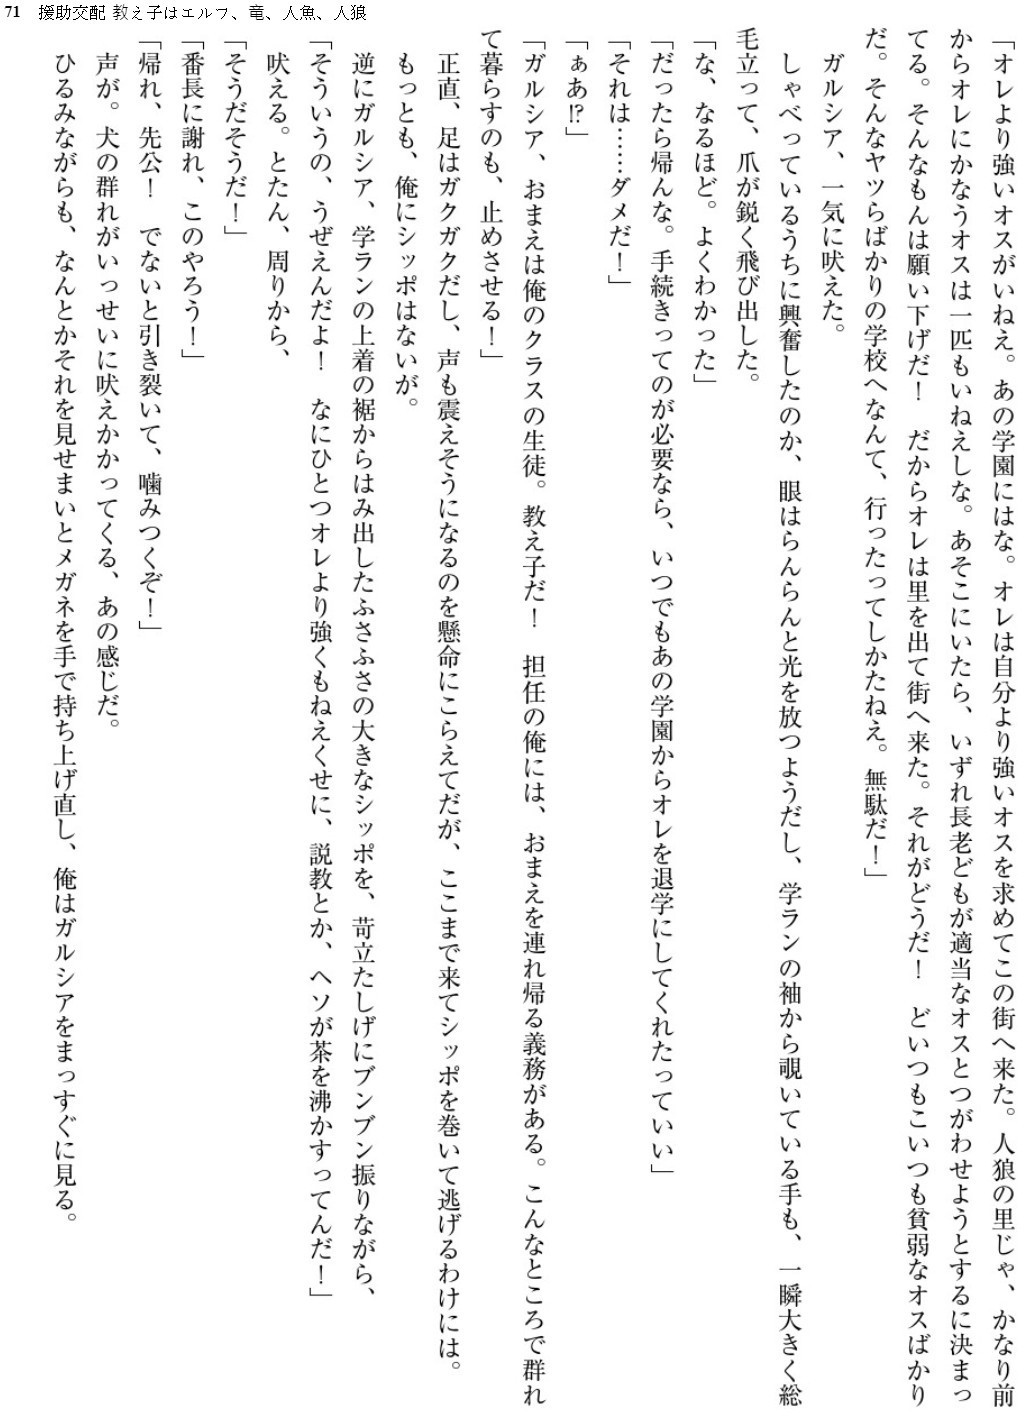 71 援助交配 教え子はエルフ、竜、人魚、人狼
「オレより強いオスがいねえ。あの学園にはな。オレは自分より強いオスを求めてこの街へ来た。人狼の里じゃ、かなり前
からオレにかなうオスは一匹もいねえしな。あそこにいたら、いずれ長老どもが適当なオスとつがわせようとするに決まっ
てる。そんなもんは願い下げだ！　だからオレは里を出て街へ来た。それがどうだ！　どいつもこいつも貧弱なオスばかり
だ。そんなヤツらばかりの学校へなんて、行ったってしかたねえ。無駄だ！」
　ガルシア、一気に吠えた。
　しゃべっているうちに興奮したのか、眼はらんらんと光を放つようだし、学ランの袖から覗いている手も、一瞬大きく総
毛立って、爪が鋭く飛び出した。
「な、なるほど。よくわかった」
「だったら帰んな。手続きってのが必要なら、いつでもあの学園からオレを退学にしてくれたっていい」
「それは……ダメだ！」
「ぁあ!?」
「ガルシア、おまえは俺のクラスの生徒。教え子だ！　担任の俺には、おまえを連れ帰る義務がある。こんなところで群れ
て暮らすのも、止めさせる！」
　正直、足はガクガクだし、声も震えそうになるのを懸命にこらえてだが、ここまで来てシッポを巻いて逃げるわけには。
　もっとも、俺にシッポはないが。
　逆にガルシア、学ランの上着の裾からはみ出したふさふさの大きなシッポを、苛立たしげにブンブン振りながら、
「そういうの、うぜえんだよ！　なにひとつオレより強くもねえくせに、説教とか、ヘソが茶を沸かすってんだ！」
　吠える。とたん、周りから、
「そうだそうだ！」
「番長に謝れ、このやろう！」
「帰れ、先公！　でないと引き裂いて、噛みつくぞ！」
　声が。犬の群れがいっせいに吠えかかってくる、あの感じだ。
　ひるみながらも、なんとかそれを見せまいとメガネを手で持ち上げ直し、俺はガルシアをまっすぐに見る。